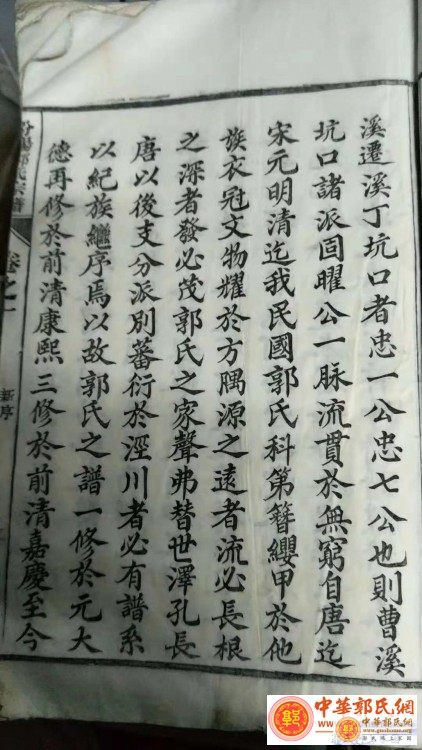 溪遷溪丁坑口者忠一公忠七公也則曹溪
坑口諸派固曜公一脉流貫於無窮自唐迄
宋元明清迄我民國郭氏科第簪纓甲於他
族衣冠文物耀於方隅源之遠者流必長根
之深者發必茂郭氏之家聲弗替世澤孔長
唐以後支分派別蕃衍於涇川者必有譜系
以紀族繼序焉以故郭氏之譜一修於元大
德再修於前清康熙三修於前清嘉慶至今
汾陽郭氏宗譜
卷之一
新序
中華郭氏網
www.guohome.org